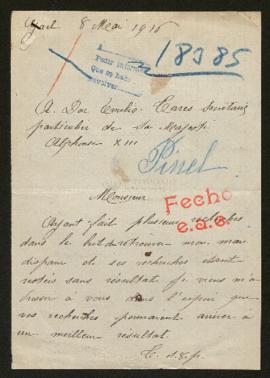 8 Mai 1916
A
Pedir informe
Que se haga
devolver
18385
A Don Emilio Secrétaire
particulier de Sa Majesté
Alphonse XIII
Pinel
Monsieur
Fecho
e.a.e.
Ayant fait plusieurs recherches
dans le but de retrouver mon mari
disparu de ses recherches étant
restées sans résultat je viens m'a
dresser à vous dans l'espoir que
vos recherches arriver à
un meilleur résultat